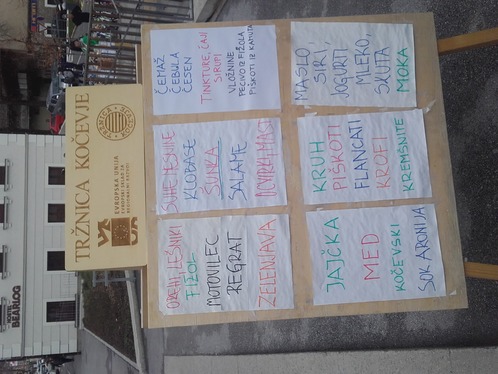 TRŽNICA KOČEVJE
EVROPSKA UNIJA
EVROPSKI SKLAD ZA
REGIONALNI RAZVOJ
OREHI, LEŠNIKI
FIŽOL
MOTOVILEC
REGRAT
ZELENJAVA
SUHE MESNINE
KLOBASE
ŠUNKA
SALAME
OCVIRKI, MAST
ČEMAŽ
ČEBULA
ČESEN
TINKTURE, ČAJI
SIRUPI
VLOŽNINE
PECIVO IZ FIŽOLA
PIŠKOTI IZ
JAJČKA
MED
KOČEVSKI
SOK ARONIJA
KRUH
PIŠKOTI
FLANCATI
KROFI
KREMŠNITE
MASLO
SIRI
JOGURTI
MLEKO,
SKUTA
MOKA
BEARLOG